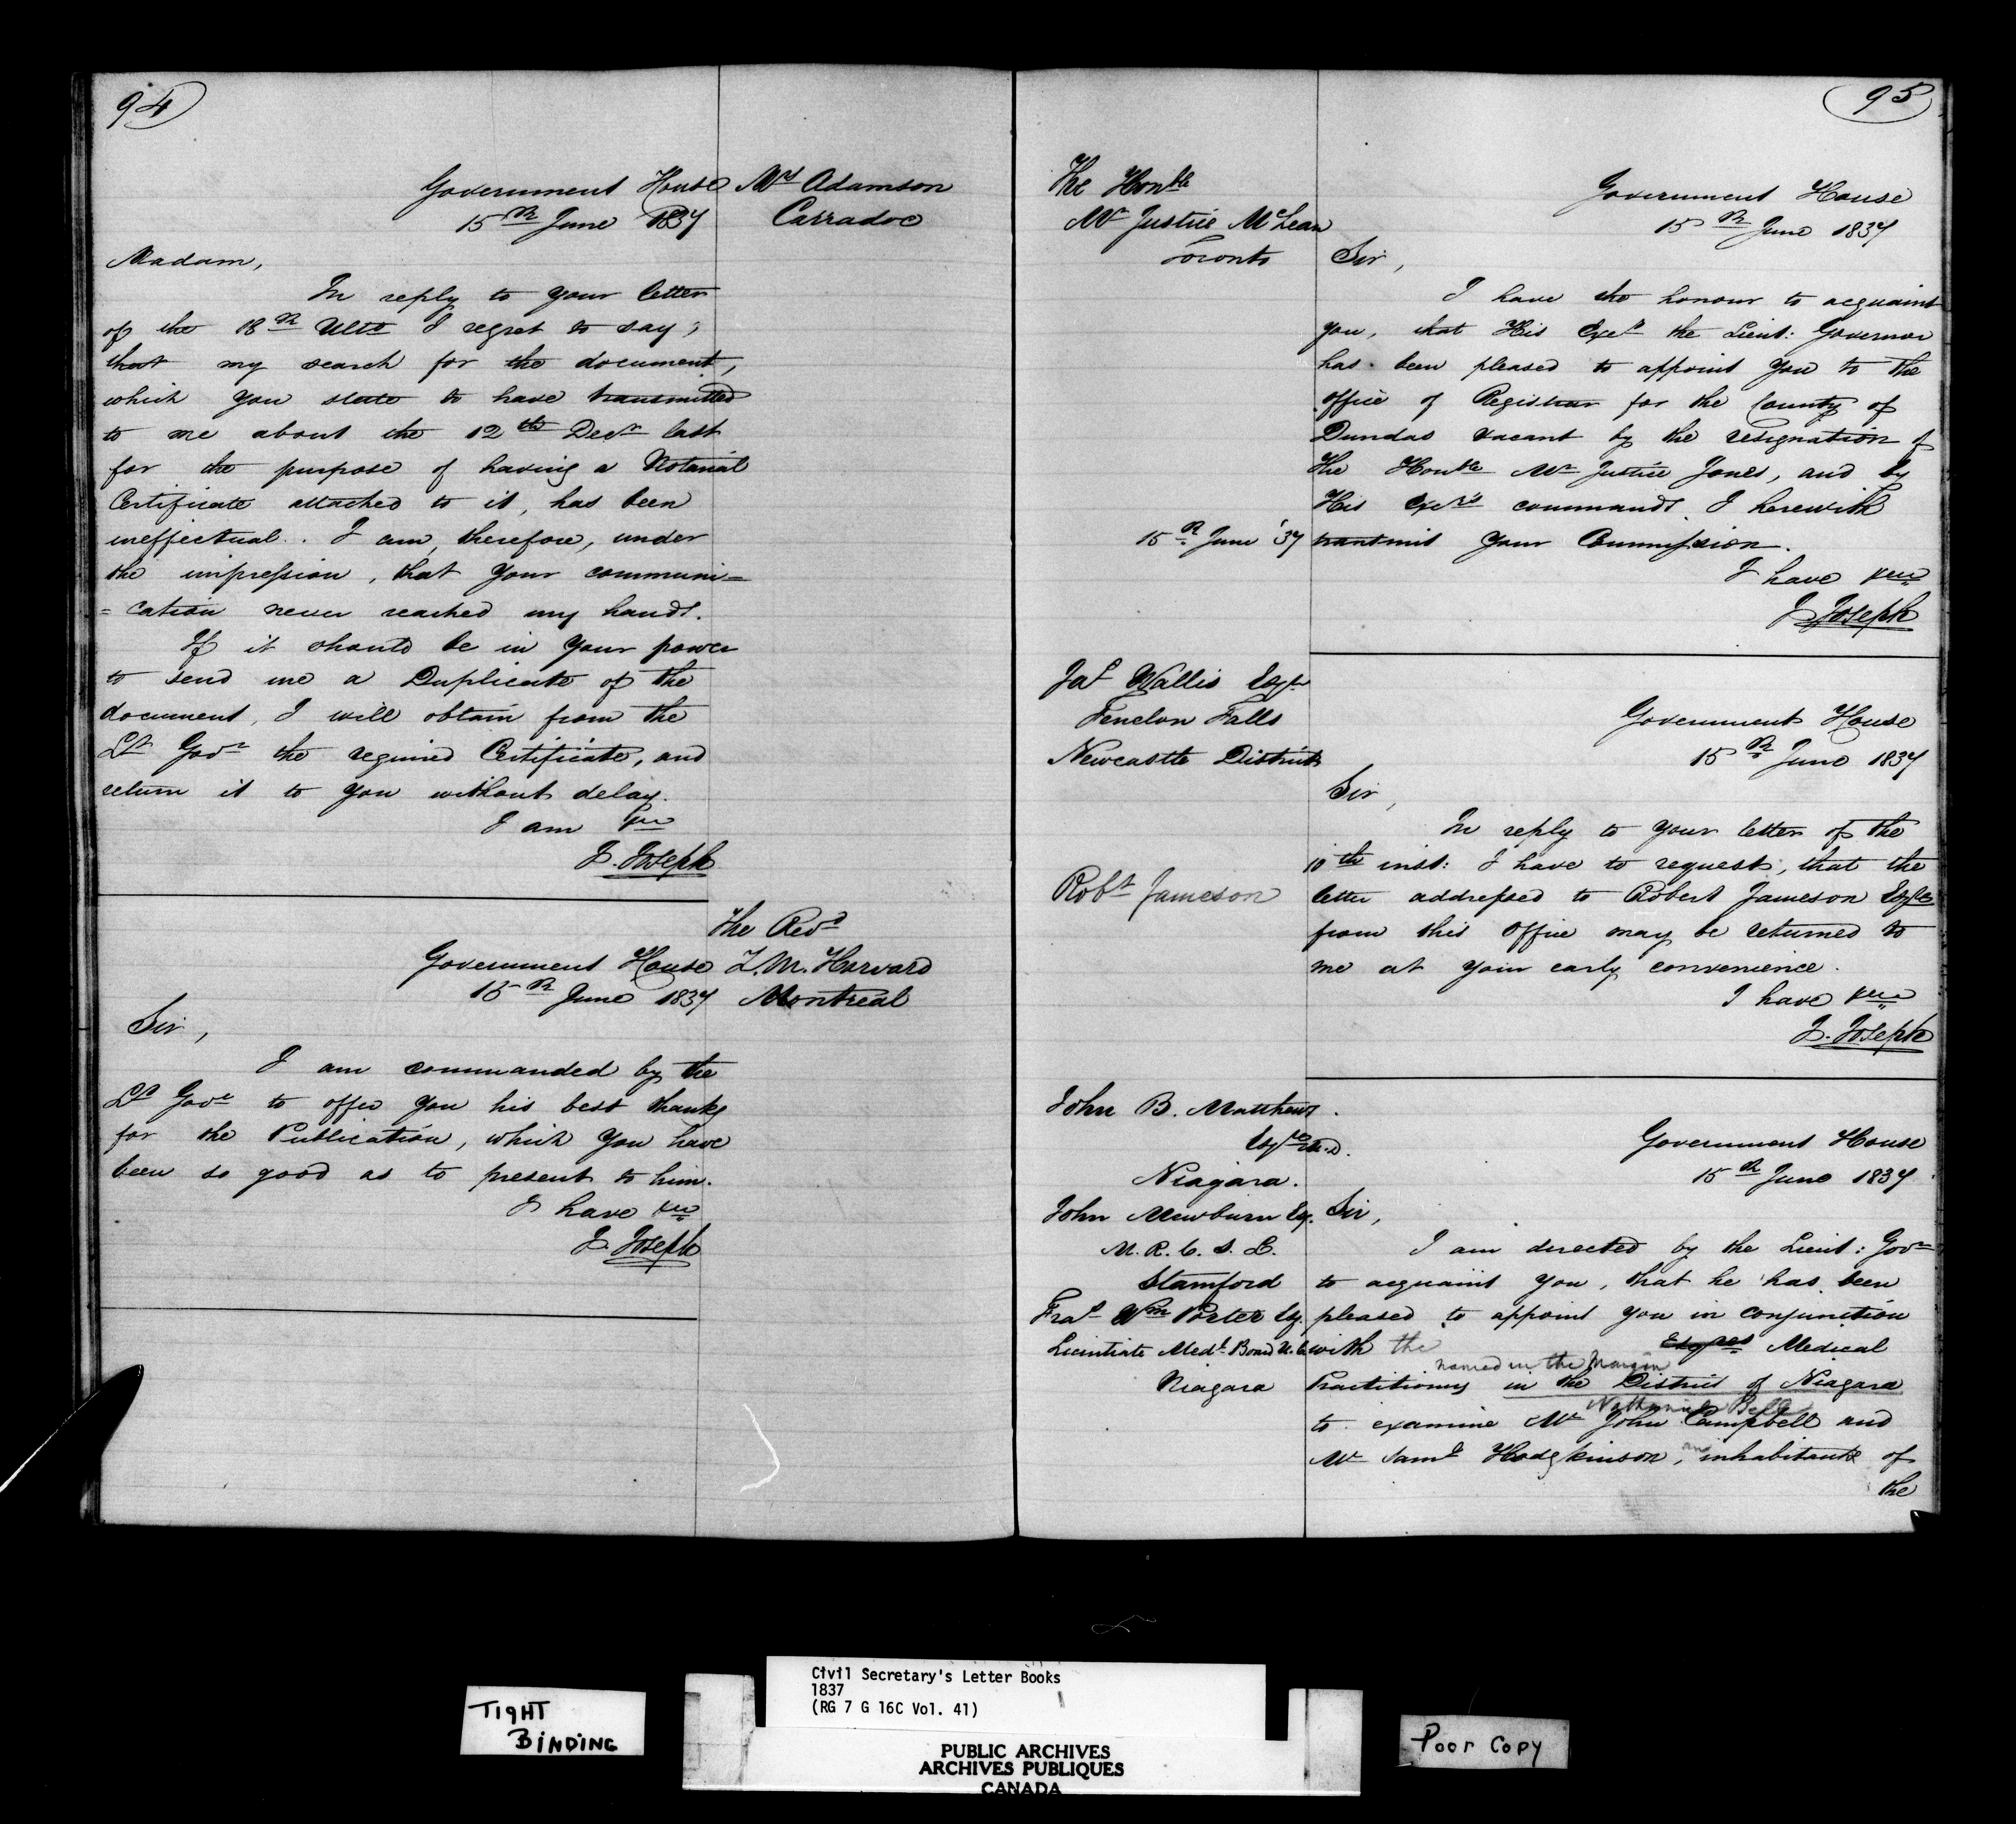 94
Government House
15th June 1837
Mrs Adamson
Carradoc
Madam,
In reply to your letter
of the 18th Ulto I regret to say,
that my search for the document,
which you state to have transmitted
to me about the 12th Decr last
for the purpose of having a Notarial
Certificate attached to it, has been
ineffectual. I am, therefore, under
the impression, that your communi=
=cation never reached my hands.
If it should be in your power
to send me a Duplicate of the
document, I will obtain from the
Lt Govr the required Certificate, and
return it to you without delay.
I am &c
J. Joseph
The Revd
Government House
15th June 1837
Harvard
Montreal
Sir,
I am commanded by the
Lt Govr to offer you his best thanks
for the Publication, which you have
been so good as to present to him.
I have &c
J. Joseph
95
The Honble
Mr Justice McLean
Toronto
Government House
15th June 1837
Sir,
I have the honour to acquaint
you, that His Excy the Lieut: Governor
has been pleased to appoint you to the
office of Registrar for the County of
Dundas vacant by the resignation of
the Honble Mr Justice Jones, and by
His Excy's commands I herewith
15th June '37
transmit your Commission.
I have &c
J Joseph
Jas Wallis Esqre
Fenelon Falls
Newcastle District
Government House
15th June 1837
Sir,
In reply to your letter of the
10th inst: I have to request, that the
Robt Jameson
letter addressed to Robert Jameson Esqre
from this Office may be returned to
me at your early convenience.
I have &c
J. Joseph
John B. Matthews
Esqre M.D.
Niagara.
John Mewburn Esq.
M. R. C. S. L.
Stamford
Fras Wm Porter Esq.
Licintiate Medl Board U.C.
Niagara
Government House
15th June 1837
Sir,
I am directed by the Lieut: Govr
to acquaint you, that he has been
pleased to appoint you in conjunction
with the Esqres Medical
named in the Margin
Practitioners in the District of Niagara
Nathaniel Bell
to examine Mr John Campbell and
Mr Saml Hodgkinson, an inhabitants of
the
TIGHT
BINDING
Civil Secretary's Letter Books
1837
(RG 7 G 16C Vol. 41)
PUBLIC ARCHIVES
ARCHIVES PUBLIQUES
CANADA
Poor Copy